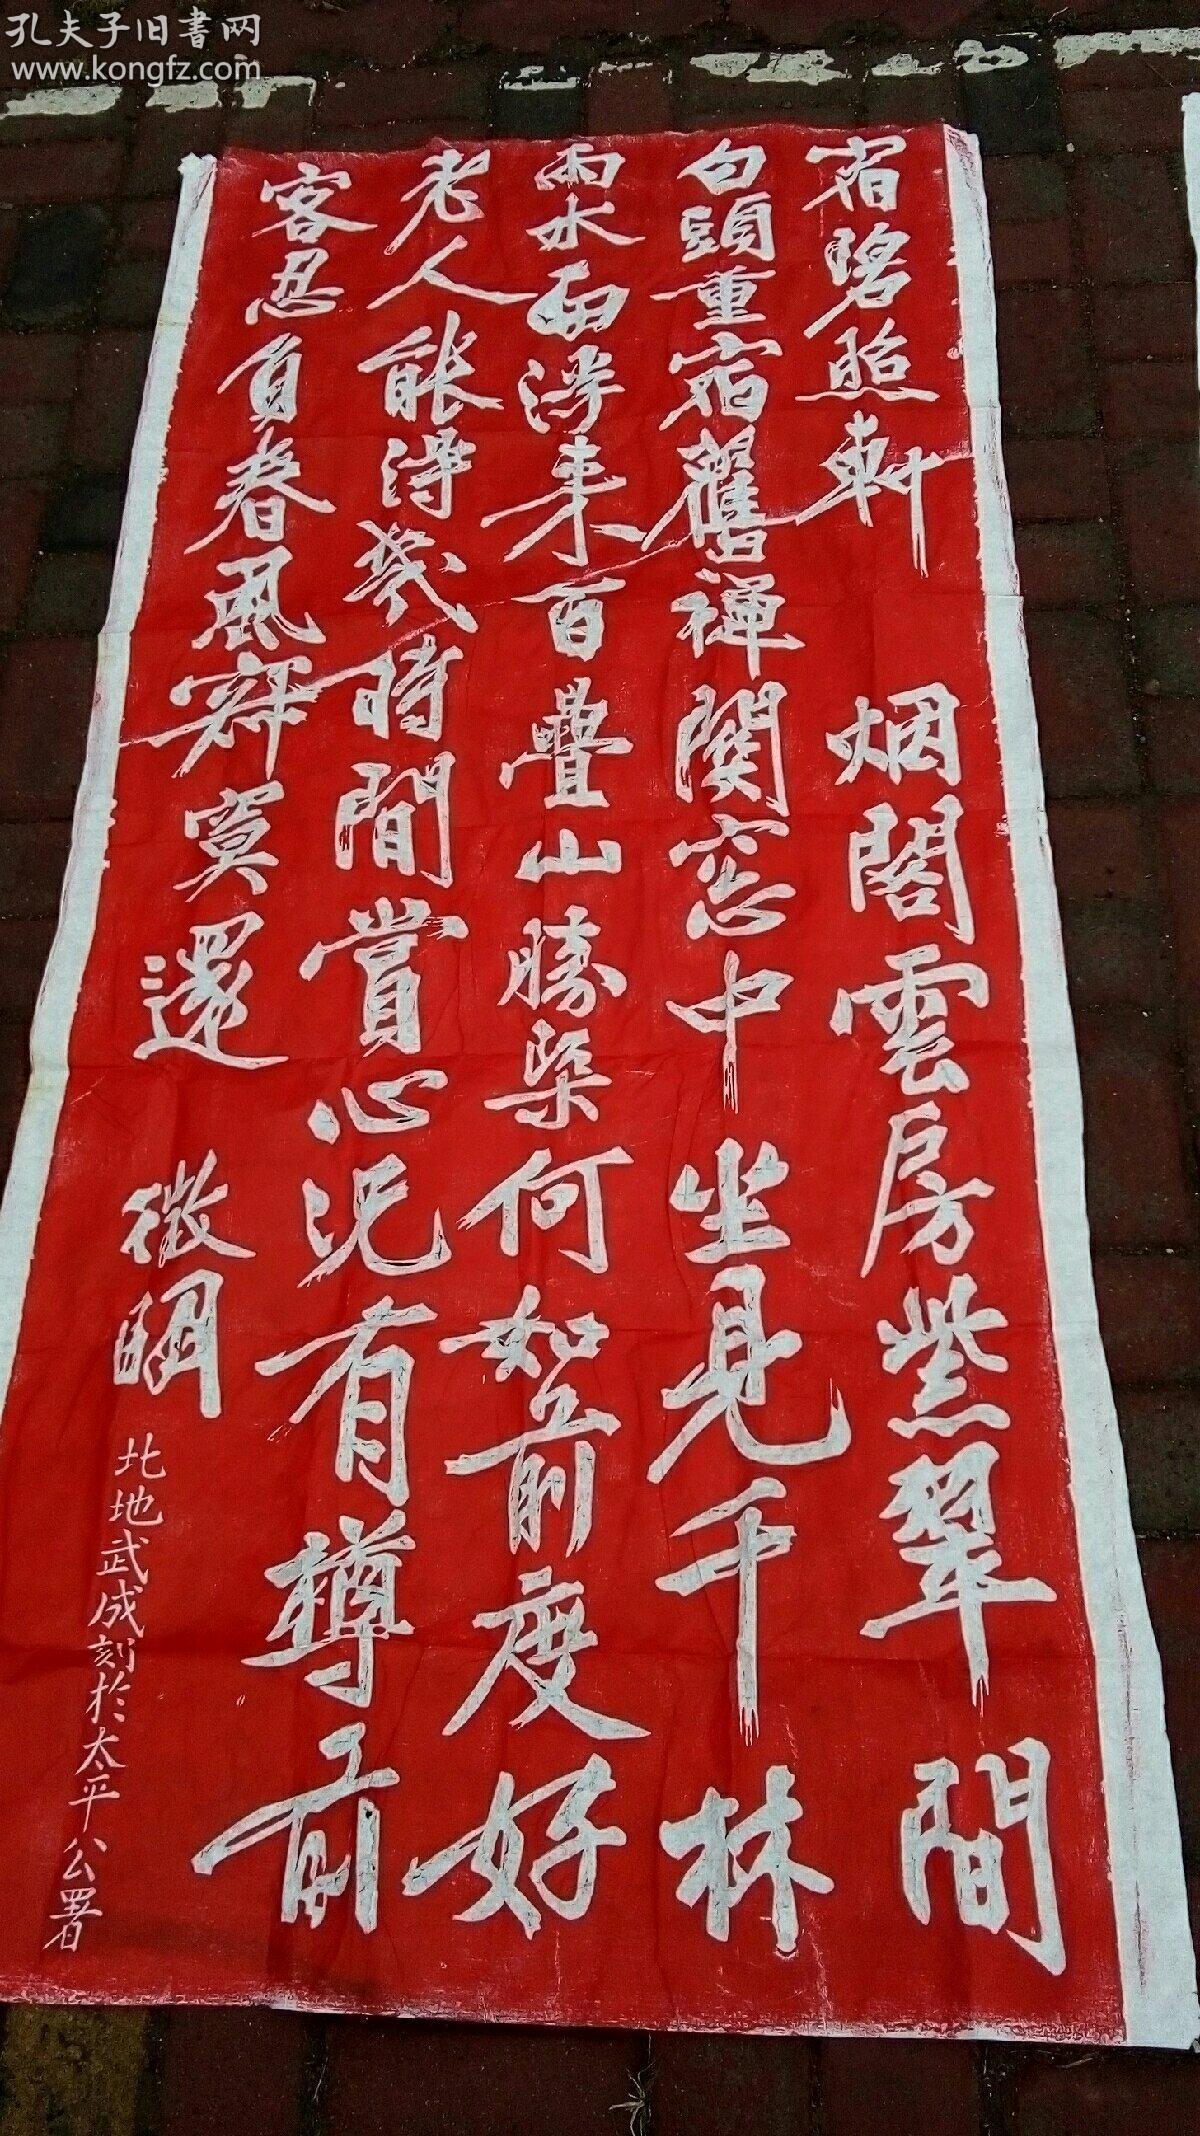 孔夫子旧書网
www.kongfz.com
宿照軒 烟閣雲房紫翠間
白頭重宿舊禪関窓中坐見千林
雨水面浮来百疊山勝槩何如前度好
老人能得幾時閒賞心况有樽前
客忍負春風寂寞還 徵明
北地武成刻於太平公署